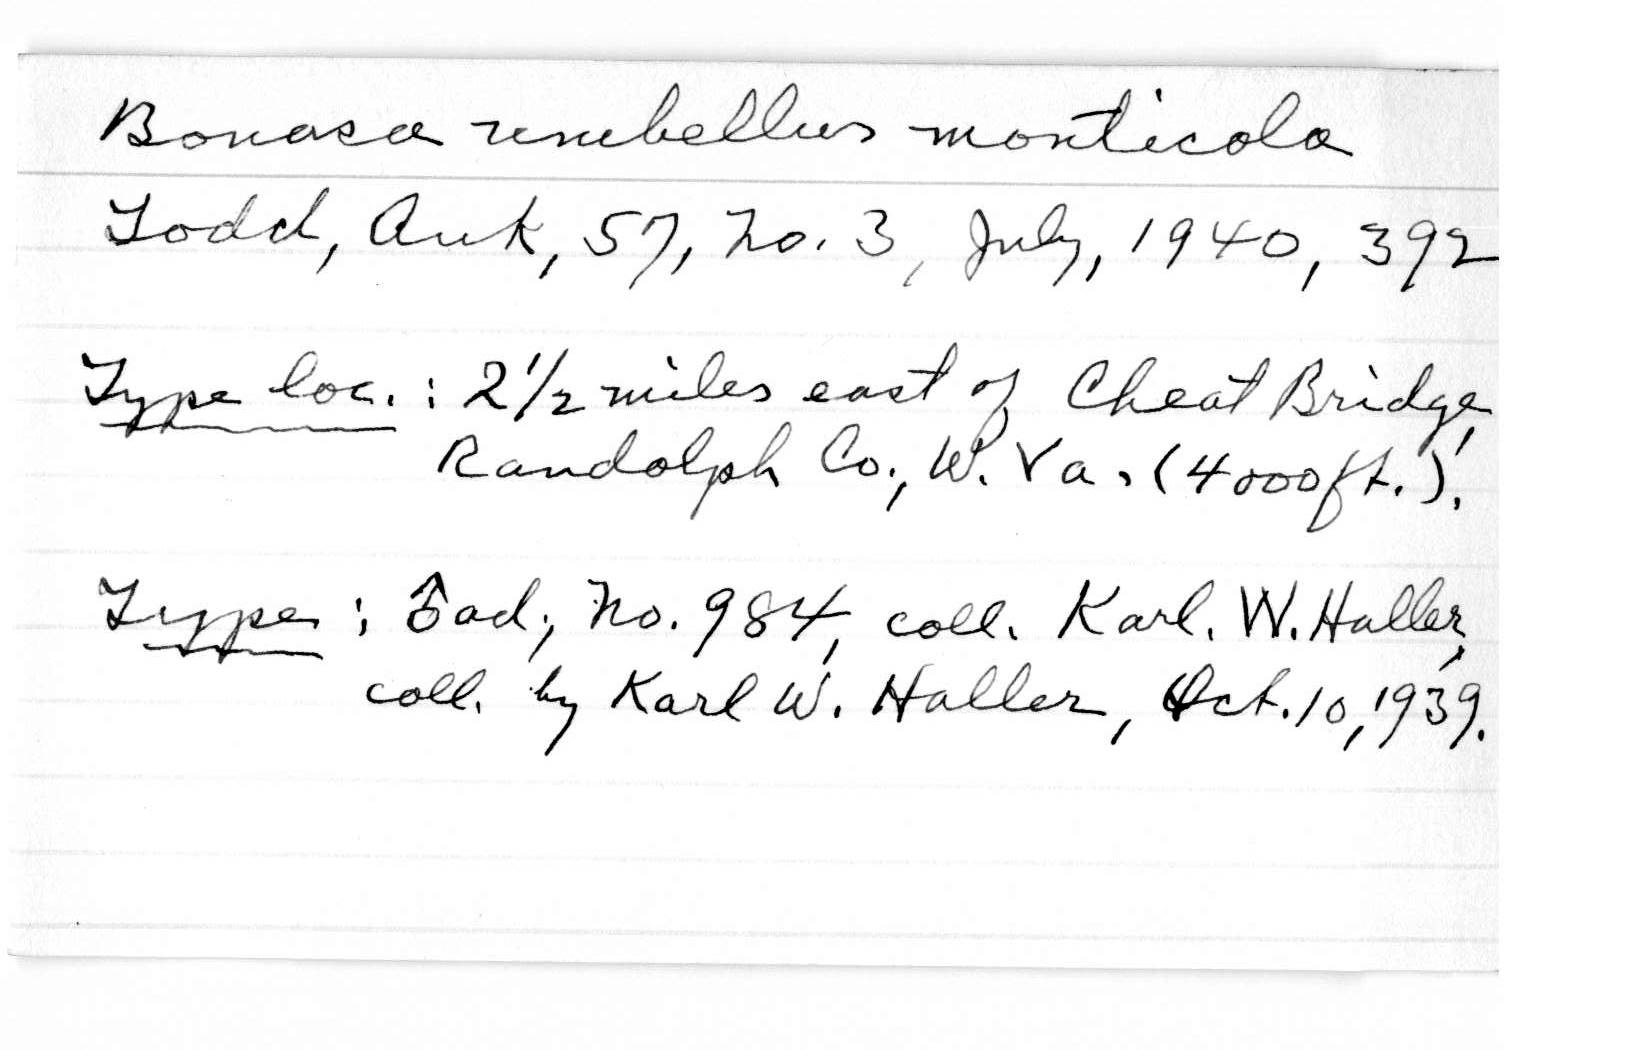 Bonasa umbellus monticola
Todd, Auk, 57, no. 3, July, 1940, 392
Type loc. : 2 1/2 miles east of Cheat Bridge,
Randolph Co., W. Va. (4000 ft.).
Type : ♂ ad., no. 984, coll. Karl. W. Haller,
coll. by Karl W. Haller, Oct. 10, 1939.